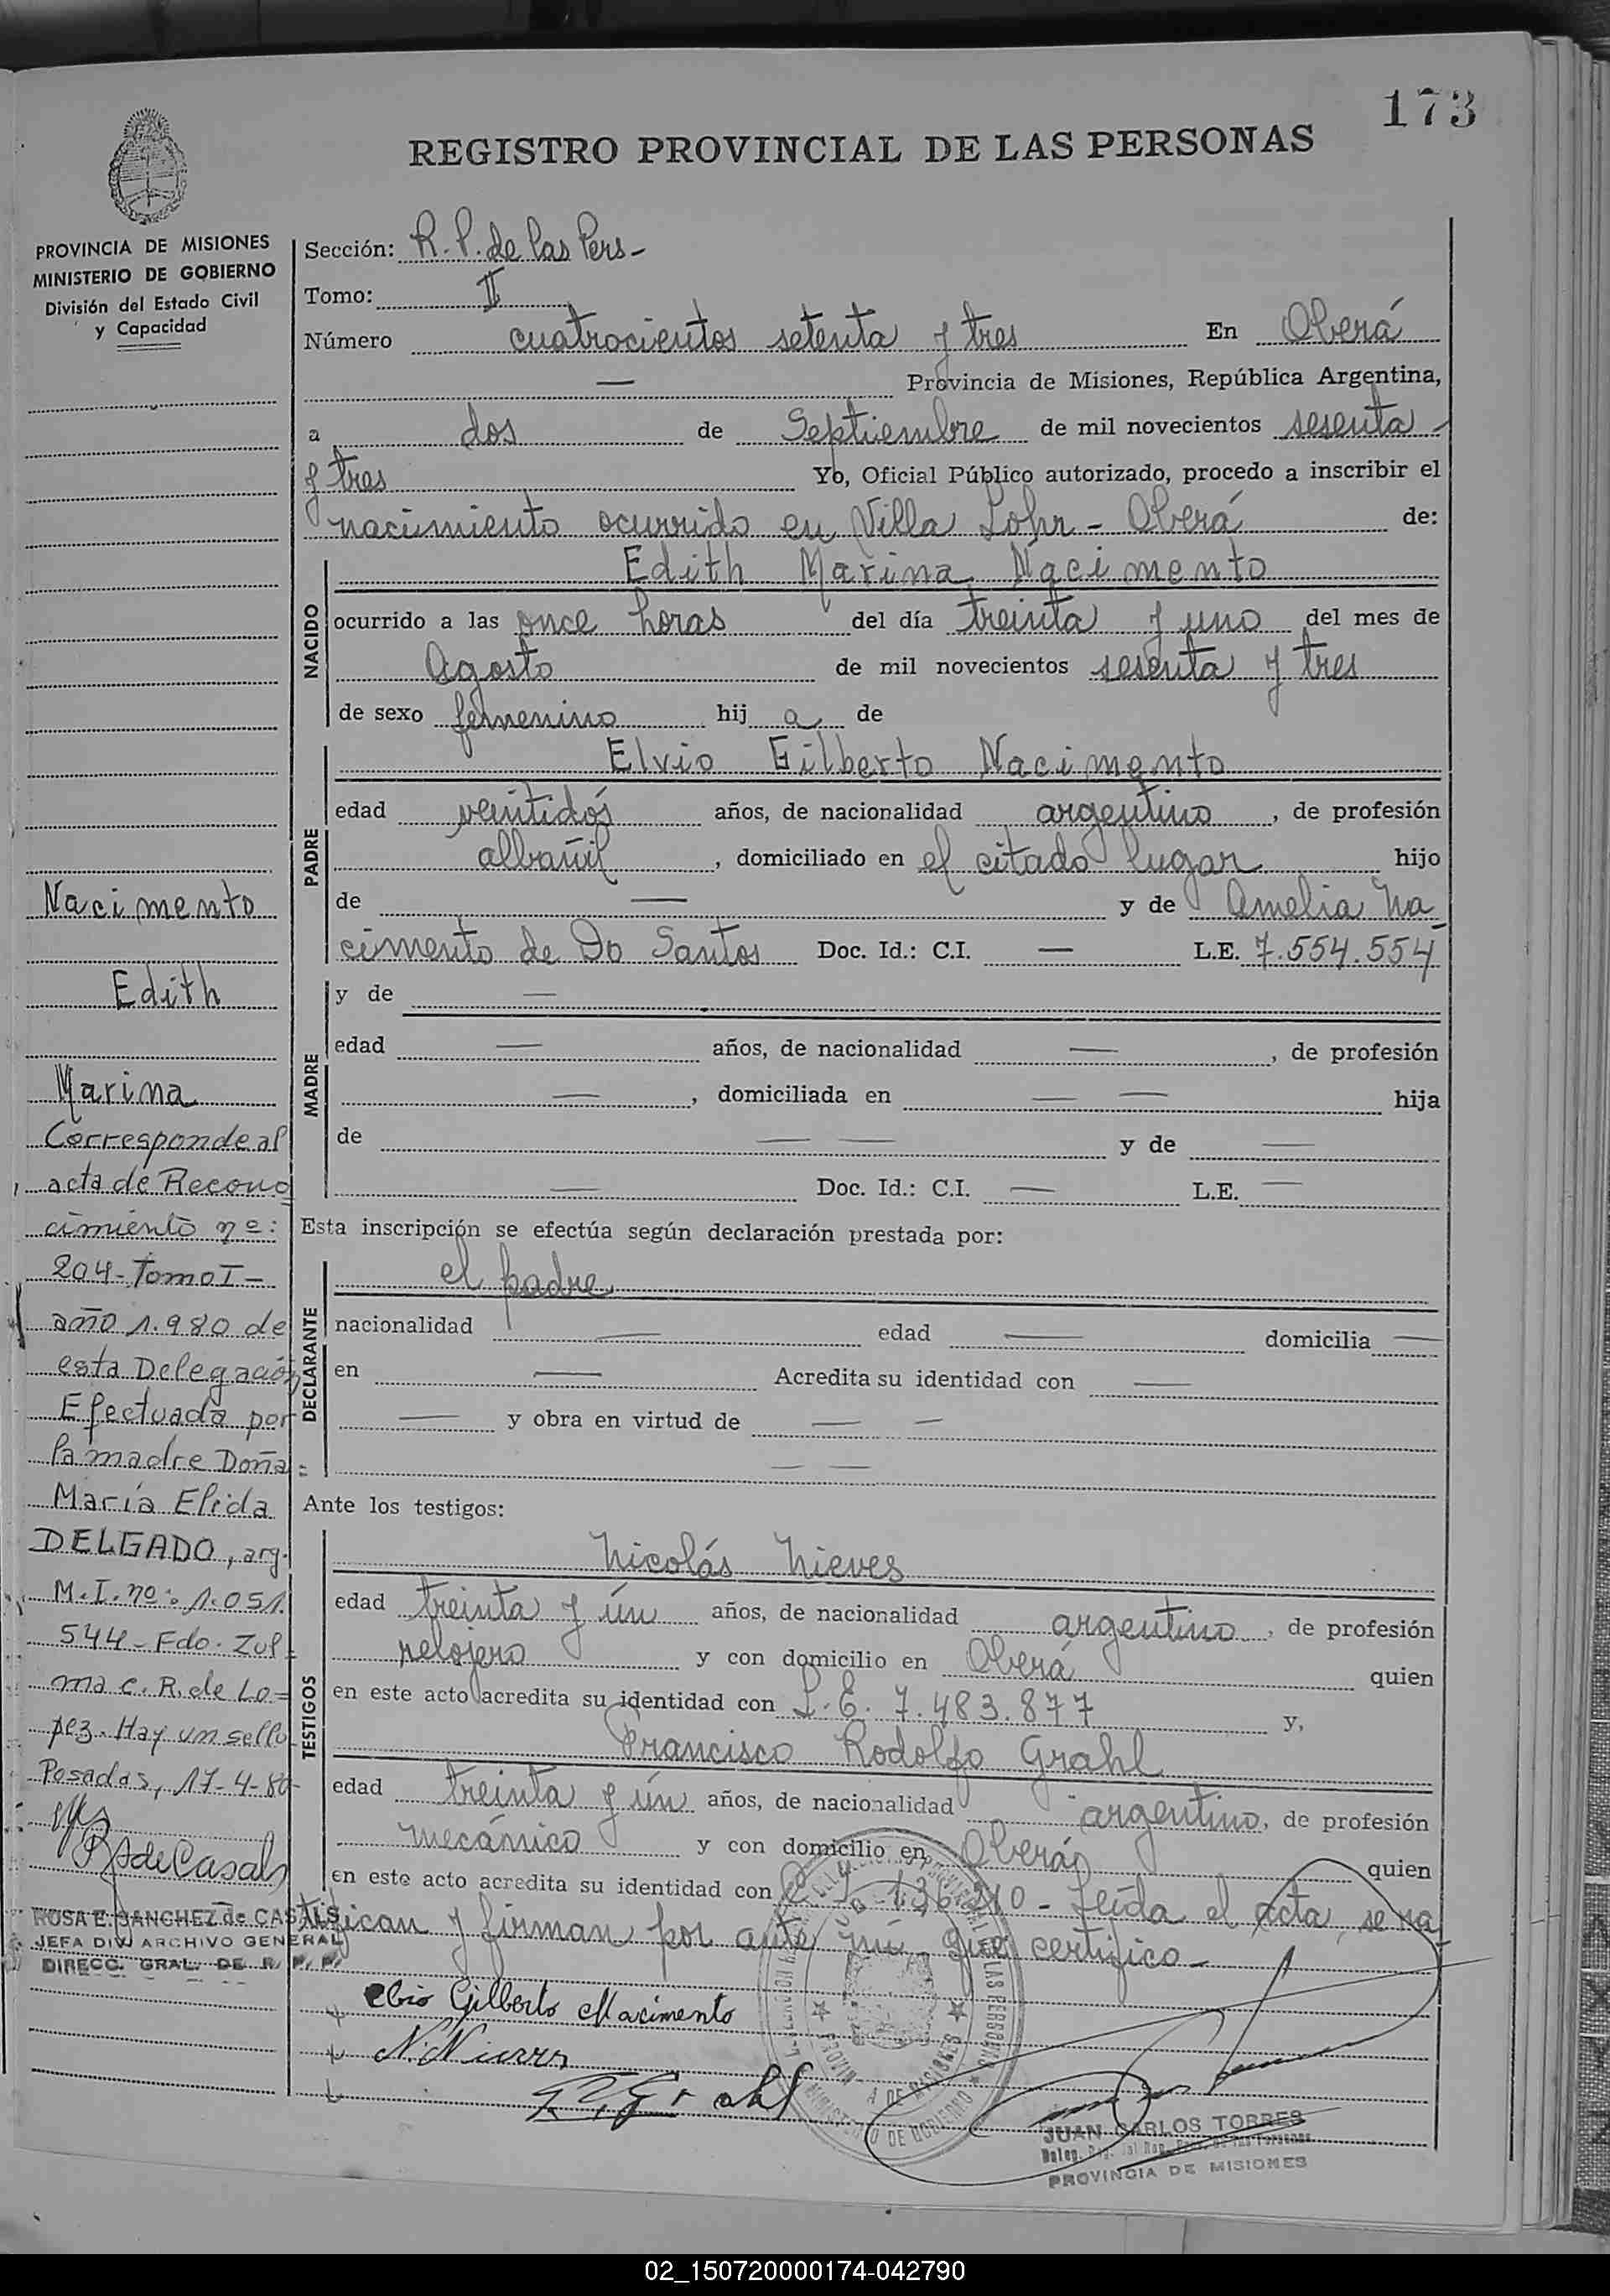 173
REGISTRO PROVINCIAL DE LAS PERSONAS
PROVINCIA DE MISIONES
MINISTERIO DE GOBIERNO
División del Estado Civil
y Capacidad
Sección: R. P. de las Pers -
Tomo: II
Número cuatrocientos setenta y tres En Oberá
— Provincia de Misiones, República Argentina,
a dos de Septiembre de mil novecientos sesenta
y tres Yo, Oficial Público autorizado, procedo a inscribir el
nacimiento ocurrido en Villa Lohr - Oberá de:
NACIDO
Edith Marina Nacimento
ocurrido a las once horas del día treinta y uno del mes de
Agosto de mil novecientos sesenta y tres
de sexo femenino hij a de
PADRE
Elvio Gilberto Nacimento
edad veintidós años, de nacionalidad argentino, de profesión
albañil, domiciliado en el citado lugar hijo
de — y de Amelia Na
cimento de Do Santos Doc. Id.: C.I. — L.E. 7.554.554
MADRE
y de —
edad — años, de nacionalidad —, de profesión
—, domiciliada en — — hija
de — — y de —
— Doc. Id.: C.I. — L.E. —
Esta inscripción se efectúa según declaración prestada por:
DECLARANTE
el padre
nacionalidad — edad — domicilia —
en — Acredita su identidad con —
— y obra en virtud de — —
— —
Ante los testigos:
TESTIGOS
Nicolás Nieves
edad treinta y ún años, de nacionalidad argentino, de profesión
relojero y con domicilio en Oberá quien
en este acto acredita su identidad con L.E. 7.483.877 y,
Francisco Rodolfo Grahl
edad treinta y ún años, de nacionalidad argentino, de profesión
mecánico y con domicilio en Oberá quien
en este acto acredita su identidad con - Leída el acta, se ra
tifican y firman por ante mí que certifico -
Elvio Gilberto Nacimento
N. Nieves
Grahl
JUAN CARLOS TORRES
PROVINCIA DE MISIONES
MINISTERIO DE GOBIERNO
Nacimento
Edith
Marina
Corresponde al
acta de Recono
cimiento nº:
204 - Tomo I -
año 1.980 de
esta Delegación
Efectuada por
la madre Doña
María Elida
DELGADO, arg.
M.I. nº: 1.051.
544 - Fdo. Zul
ma C. R. de Lo=
pez. Hay un sello
Posadas, 17-4-80
R S de Casals
ROSA E. SANCHEZ de CASALS
JEFA DIV. ARCHIVO GENERAL
DIRECC. GRAL. DE R. P. P.
02_150720000174-042790